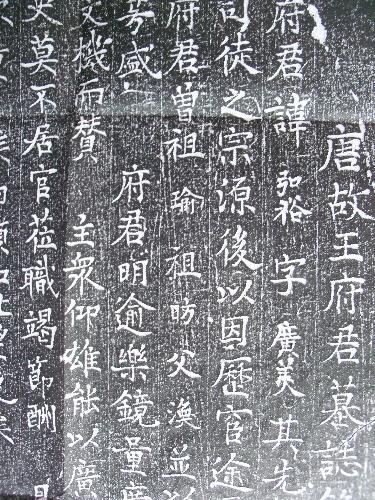 唐故王府君墓誌
府君諱弘裕字廣美其先
司徒之宗源後以因歷官途
府君曾祖瑜祖昉父渙並以
芳盛 府君明逾樂鏡量
機而贊 主衆仰雄能以廣
史莫不居官莅職竭節酬